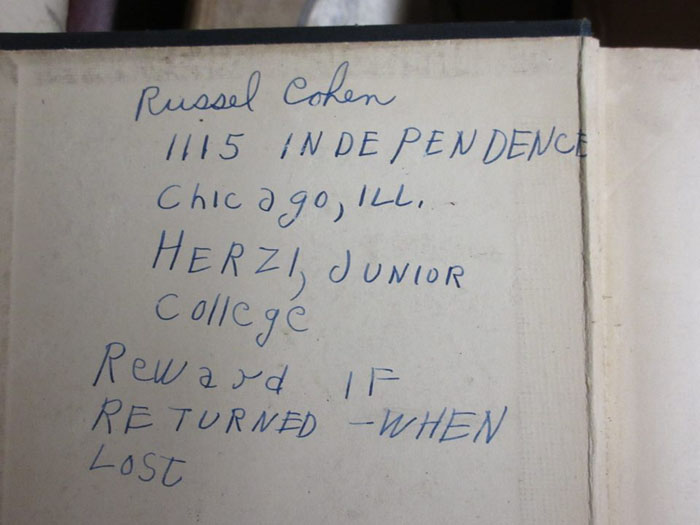 Russel Cohen
1115 INDEPENDENCE
Chicago, ILL.
HERZl, JUNIOR
College
Reward IF
RETURNED - WHEN
LOST